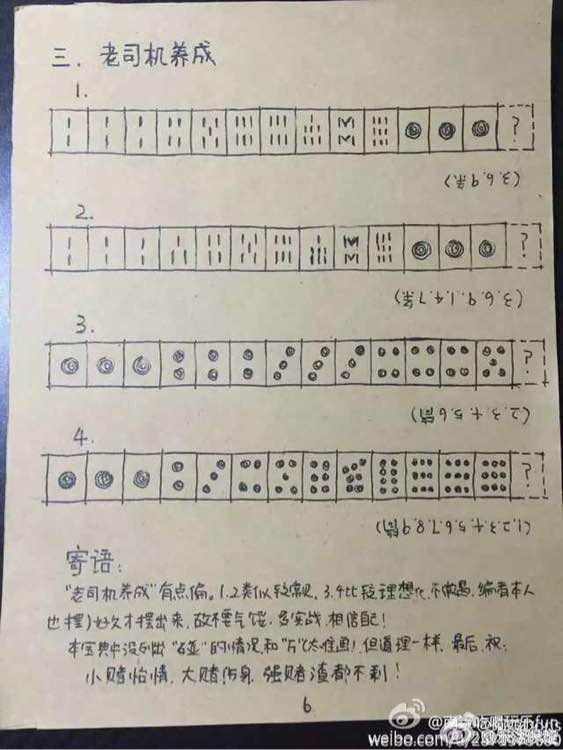 三. 老司机养成
1.
?
(3.6.9条)
2.
?
(3.6.9.1.4.7条)
3.
?
(2.3.4.5.6筒)
4.
?
(1.2.3.4.5.6.7.8.9筒)
寄语:
"老司机养成"有点偏。1.2类似较常见. 3.4比较理想化.不常遇.编者本人
也摆了好久才摆出来,故不要气馁.多实战.相信自己!
本宝典中没列出"碰"的情况和"万"(太难画!)但道理一样.最后.祝:
小赌怡情.大赌伤身.强赌渣都不剩!
6
weibo.com/